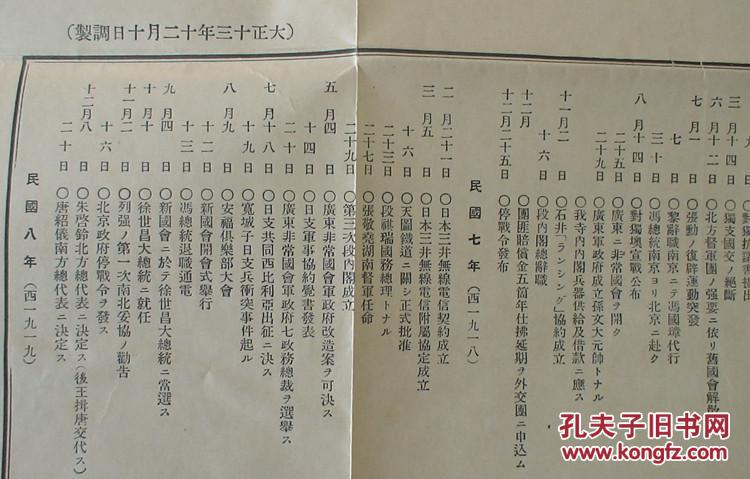 （大正十三年十二月十日調製）
三月十四日　〇獨支國交ノ絕斷
六月十二日　〇北方督軍團ノ强要ニ依リ舊國會解散
七月一日　〇張勳ノ復辟運動突發
七日　〇黎辭職南京ニテ馮國璋代行
三十日　〇馮總統南京ヨリ北京ニ赴ク
八月十四日　〇對獨墺宣戰公布
二十五日　〇廣東ニ非常國會ヲ開ク
二十九日　〇廣東軍政府成立孫文大元帥トナル
〇我寺內內閣兵器供給及借款ニ應ス
十一月二日　〇石井「ランシング」協約成立
十六日　〇段內閣總辭職
十二月　〇團匪賠償金五箇年仕拂延期ヲ外交團ニ申込ム
十二月二十五日　〇停戰令發布
民國七年（西一九一八）
二月二十一日　〇日本三井無線電信契約成立
三月五日　〇日本三井無線電信附屬協定成立
十六日　〇天圖鐵道ニ關シ正式批准
二十三日　〇段祺瑞國務總理トナル
二十七日　〇張敬堯湖南督軍任命
二十九日　〇第三次段內閣成立
五月四日　〇廣東非常國會軍政府改造案ヲ可決ス
十四日　〇日支軍事協約覺書發表
二十日　〇廣東非常國會軍政府七政務總裁ヲ選擧ス
七月十八日　〇日支共同西比利亞出征ニ決ス
十九日　〇寬城子日支兵衝突事件起ル
八月九日　〇安福俱樂部大會
十二日　〇新國會開會式擧行
十三日　〇馮總統退職通電
九月四日　〇新國會ニ於テ徐世昌大總統ニ當選ス
十月十日　〇徐世昌大總統ニ就任
十一月二日　〇列强ノ第一次南北妥協ノ勸告
十六日　〇北京政府停戰令ヲ發ス
十二月八日　〇朱啓鈐北方總代表ニ決定ス（後王揖唐交代ス）
二十日　〇唐紹儀南方總代表ニ決定ス
民國八年（西一九一九）
孔夫子旧书网
KONGFZ.COM